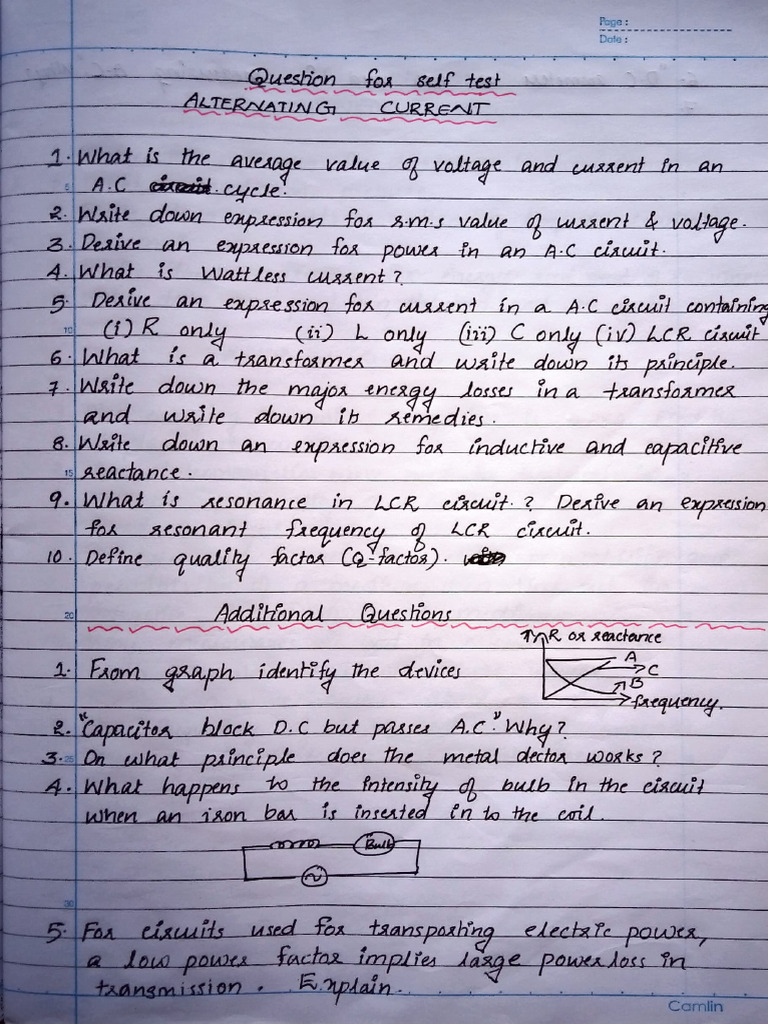 Page :
Date :
Question for self test
ALTERNATING CURRENT
1. What is the average value of voltage and current in an
5 A.C cycle.
2. Write down expression for r.m.s value of current & voltage.
3. Derive an expression for power in an A.C circuit.
4. What is Wattless current?
5. Derive an expression for current in a A.C circuit containing
10 (i) R only (ii) L only (iii) C only (iv) LCR circuit
6. What is a transformer and write down its principle.
7. Write down the major energy losses in a transformer
and write down its remedies.
8. Write down an expression for inductive and capacitive
15 reactance.
9. What is resonance in LCR circuit.? Derive an expression
for resonant frequency of LCR circuit.
10. Define quality factor (Q-factor).
20 Additional Questions
R or reactance
A
1. From graph identify the devices
C
B
frequency.
2. "Capacitor block D.C but passes A.C." Why?
3. 25 On what principle does the metal dector works?
4. What happens to the intensity of bulb in the circuit
when an iron bar is inserted in to the coil.
Bulb
~
30
5. For circuits used for transporting electric power,
a low power factor implies large power loss in
transmission. Explain.
Camlin